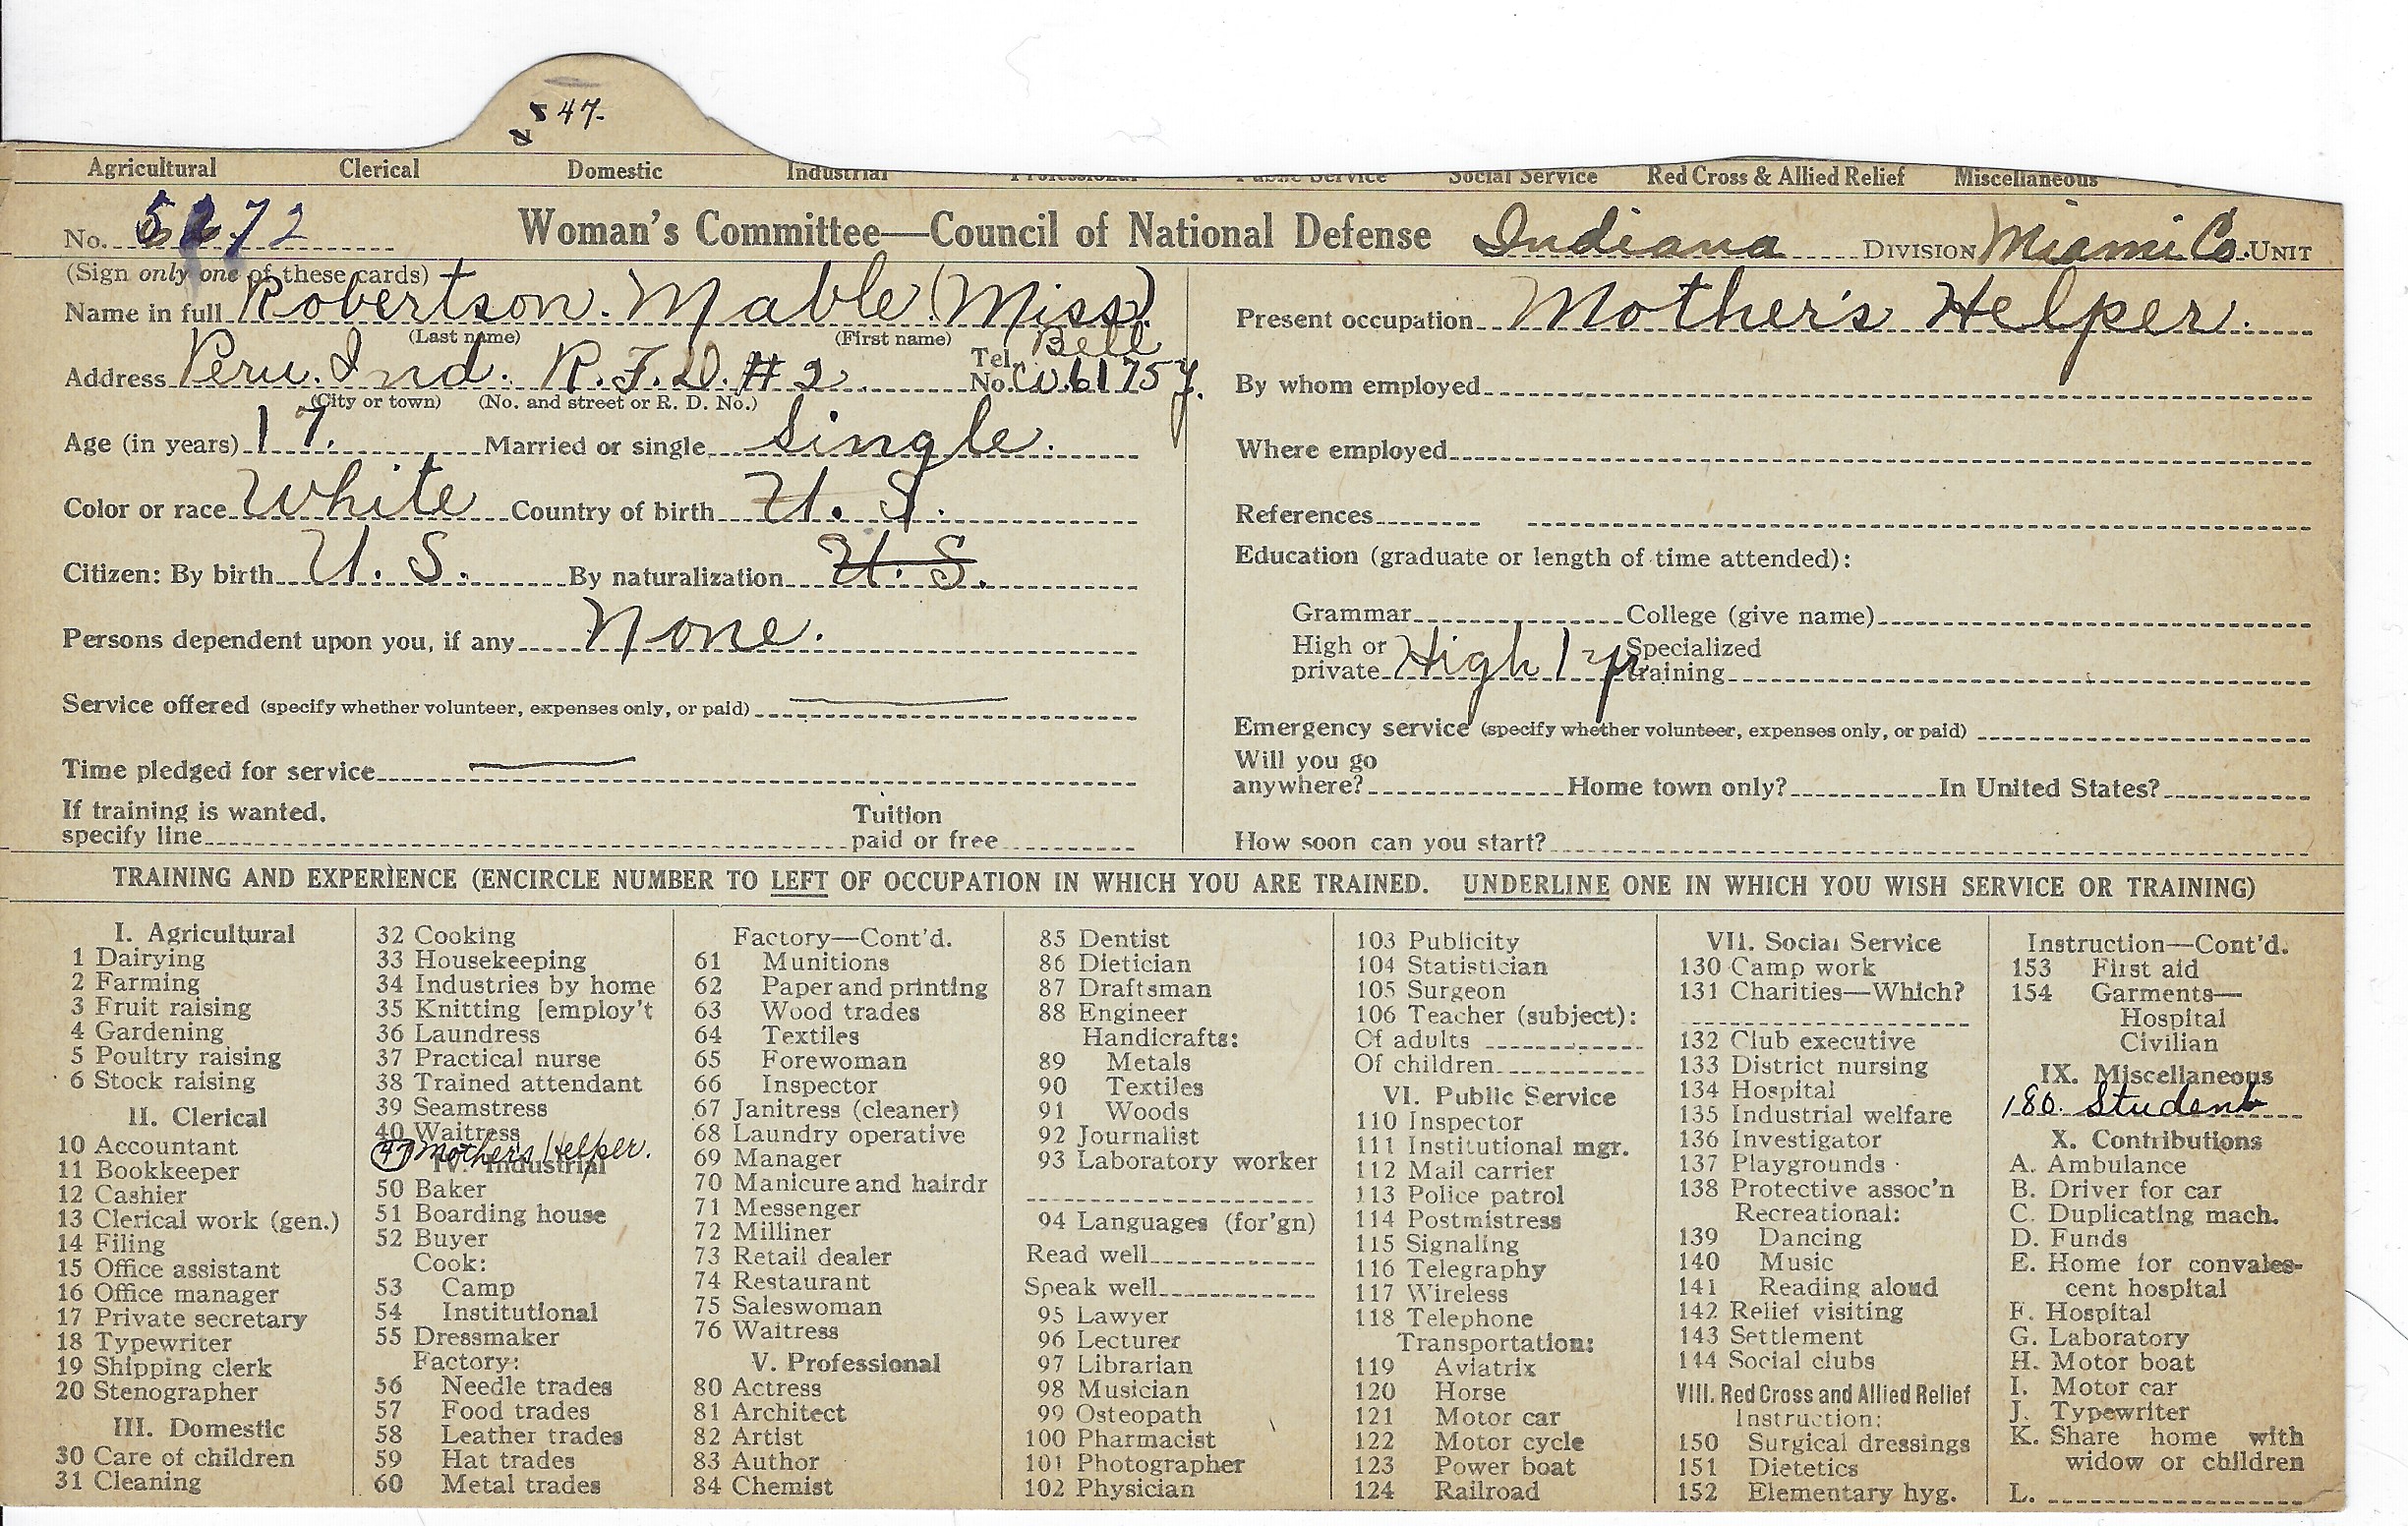 47.
Agricultural Clerical Domestic Industrial Professional Public Service Social Service Red Cross & Allied Relief Miscellaneous
No. 5272 Woman's Committee—Council of National Defense Indiana DIVISION Miami Co. UNIT
(Sign only one of these cards)
Name in full Robertson. Mable (Miss)
(Last name) (First name)
Address Peru. Ind. R.F.D. #2. Tel. No. Bell
(City or town) (No. and street or R. D. No.)
Age (in years) 17. Married or single Single.
Color or race White Country of birth U. S.
Citizen: By birth U. S. By naturalization U. S.
Persons dependent upon you, if any None.
Service offered (specify whether volunteer, expenses only, or paid)
Time pledged for service
If training is wanted, specify line Tuition paid or free
Present occupation Mother's Helper.
By whom employed
Where employed
References
Education (graduate or length of time attended):
Grammar College (give name)
High or private High 1 yr Specialized training
Emergency service (specify whether volunteer, expenses only, or paid)
Will you go anywhere? Home town only? In United States?
How soon can you start?
TRAINING AND EXPERIENCE (ENCIRCLE NUMBER TO LEFT OF OCCUPATION IN WHICH YOU ARE TRAINED. UNDERLINE ONE IN WHICH YOU WISH SERVICE OR TRAINING)
I. Agricultural
1 Dairying
2 Farming
3 Fruit raising
4 Gardening
5 Poultry raising
6 Stock raising
II. Clerical
10 Accountant
11 Bookkeeper
12 Cashier
13 Clerical work (gen.)
14 Filing
15 Office assistant
16 Office manager
17 Private secretary
18 Typewriter
19 Shipping clerk
20 Stenographer
III. Domestic
30 Care of children
31 Cleaning
32 Cooking
33 Housekeeping
34 Industries by home
35 Knitting [employ't
36 Laundress
37 Practical nurse
38 Trained attendant
39 Seamstress
40 Waitress
47 Mother's Helper.
IV. Industrial
50 Baker
51 Boarding house
52 Buyer
Cook:
53 Camp
54 Institutional
55 Dressmaker
Factory:
56 Needle trades
57 Food trades
58 Leather trades
59 Hat trades
60 Metal trades
Factory—Cont'd.
61 Munitions
62 Paper and printing
63 Wood trades
64 Textiles
65 Forewoman
66 Inspector
67 Janitress (cleaner)
68 Laundry operative
69 Manager
70 Manicure and hairdr
71 Messenger
72 Milliner
73 Retail dealer
74 Restaurant
75 Saleswoman
76 Waitress
V. Professional
80 Actress
81 Architect
82 Artist
83 Author
84 Chemist
85 Dentist
86 Dietician
87 Draftsman
88 Engineer
Handicrafts:
89 Metals
90 Textiles
91 Woods
92 Journalist
93 Laboratory worker
94 Languages (for'gn)
Read well
Speak well
95 Lawyer
96 Lecturer
97 Librarian
98 Musician
99 Osteopath
100 Pharmacist
101 Photographer
102 Physician
103 Publicity
104 Statistician
105 Surgeon
106 Teacher (subject):
Of adults
Of children
VI. Public Service
110 Inspector
111 Institutional mgr.
112 Mail carrier
113 Police patrol
114 Postmistress
115 Signaling
116 Telegraphy
117 Wireless
118 Telephone
Transportation:
119 Aviatrix
120 Horse
121 Motor car
122 Motor cycle
123 Power boat
124 Railroad
VII. Social Service
130 Camp work
131 Charities—Which?
132 Club executive
133 District nursing
134 Hospital
135 Industrial welfare
136 Investigator
137 Playgrounds
138 Protective assoc'n
Recreational:
139 Dancing
140 Music
141 Reading aloud
142 Relief visiting
143 Settlement
144 Social clubs
VIII. Red Cross and Allied Relief
Instruction:
150 Surgical dressings
151 Dietetics
152 Elementary hyg.
Instruction—Cont'd.
153 First aid
154 Garments—
Hospital
Civilian
IX. Miscellaneous
180. Student
X. Contributions
A. Ambulance
B. Driver for car
C. Duplicating mach.
D. Funds
E. Home for convales-
cent hospital
F. Hospital
G. Laboratory
H. Motor boat
I. Motor car
J. Typewriter
K. Share home with
widow or children
L.